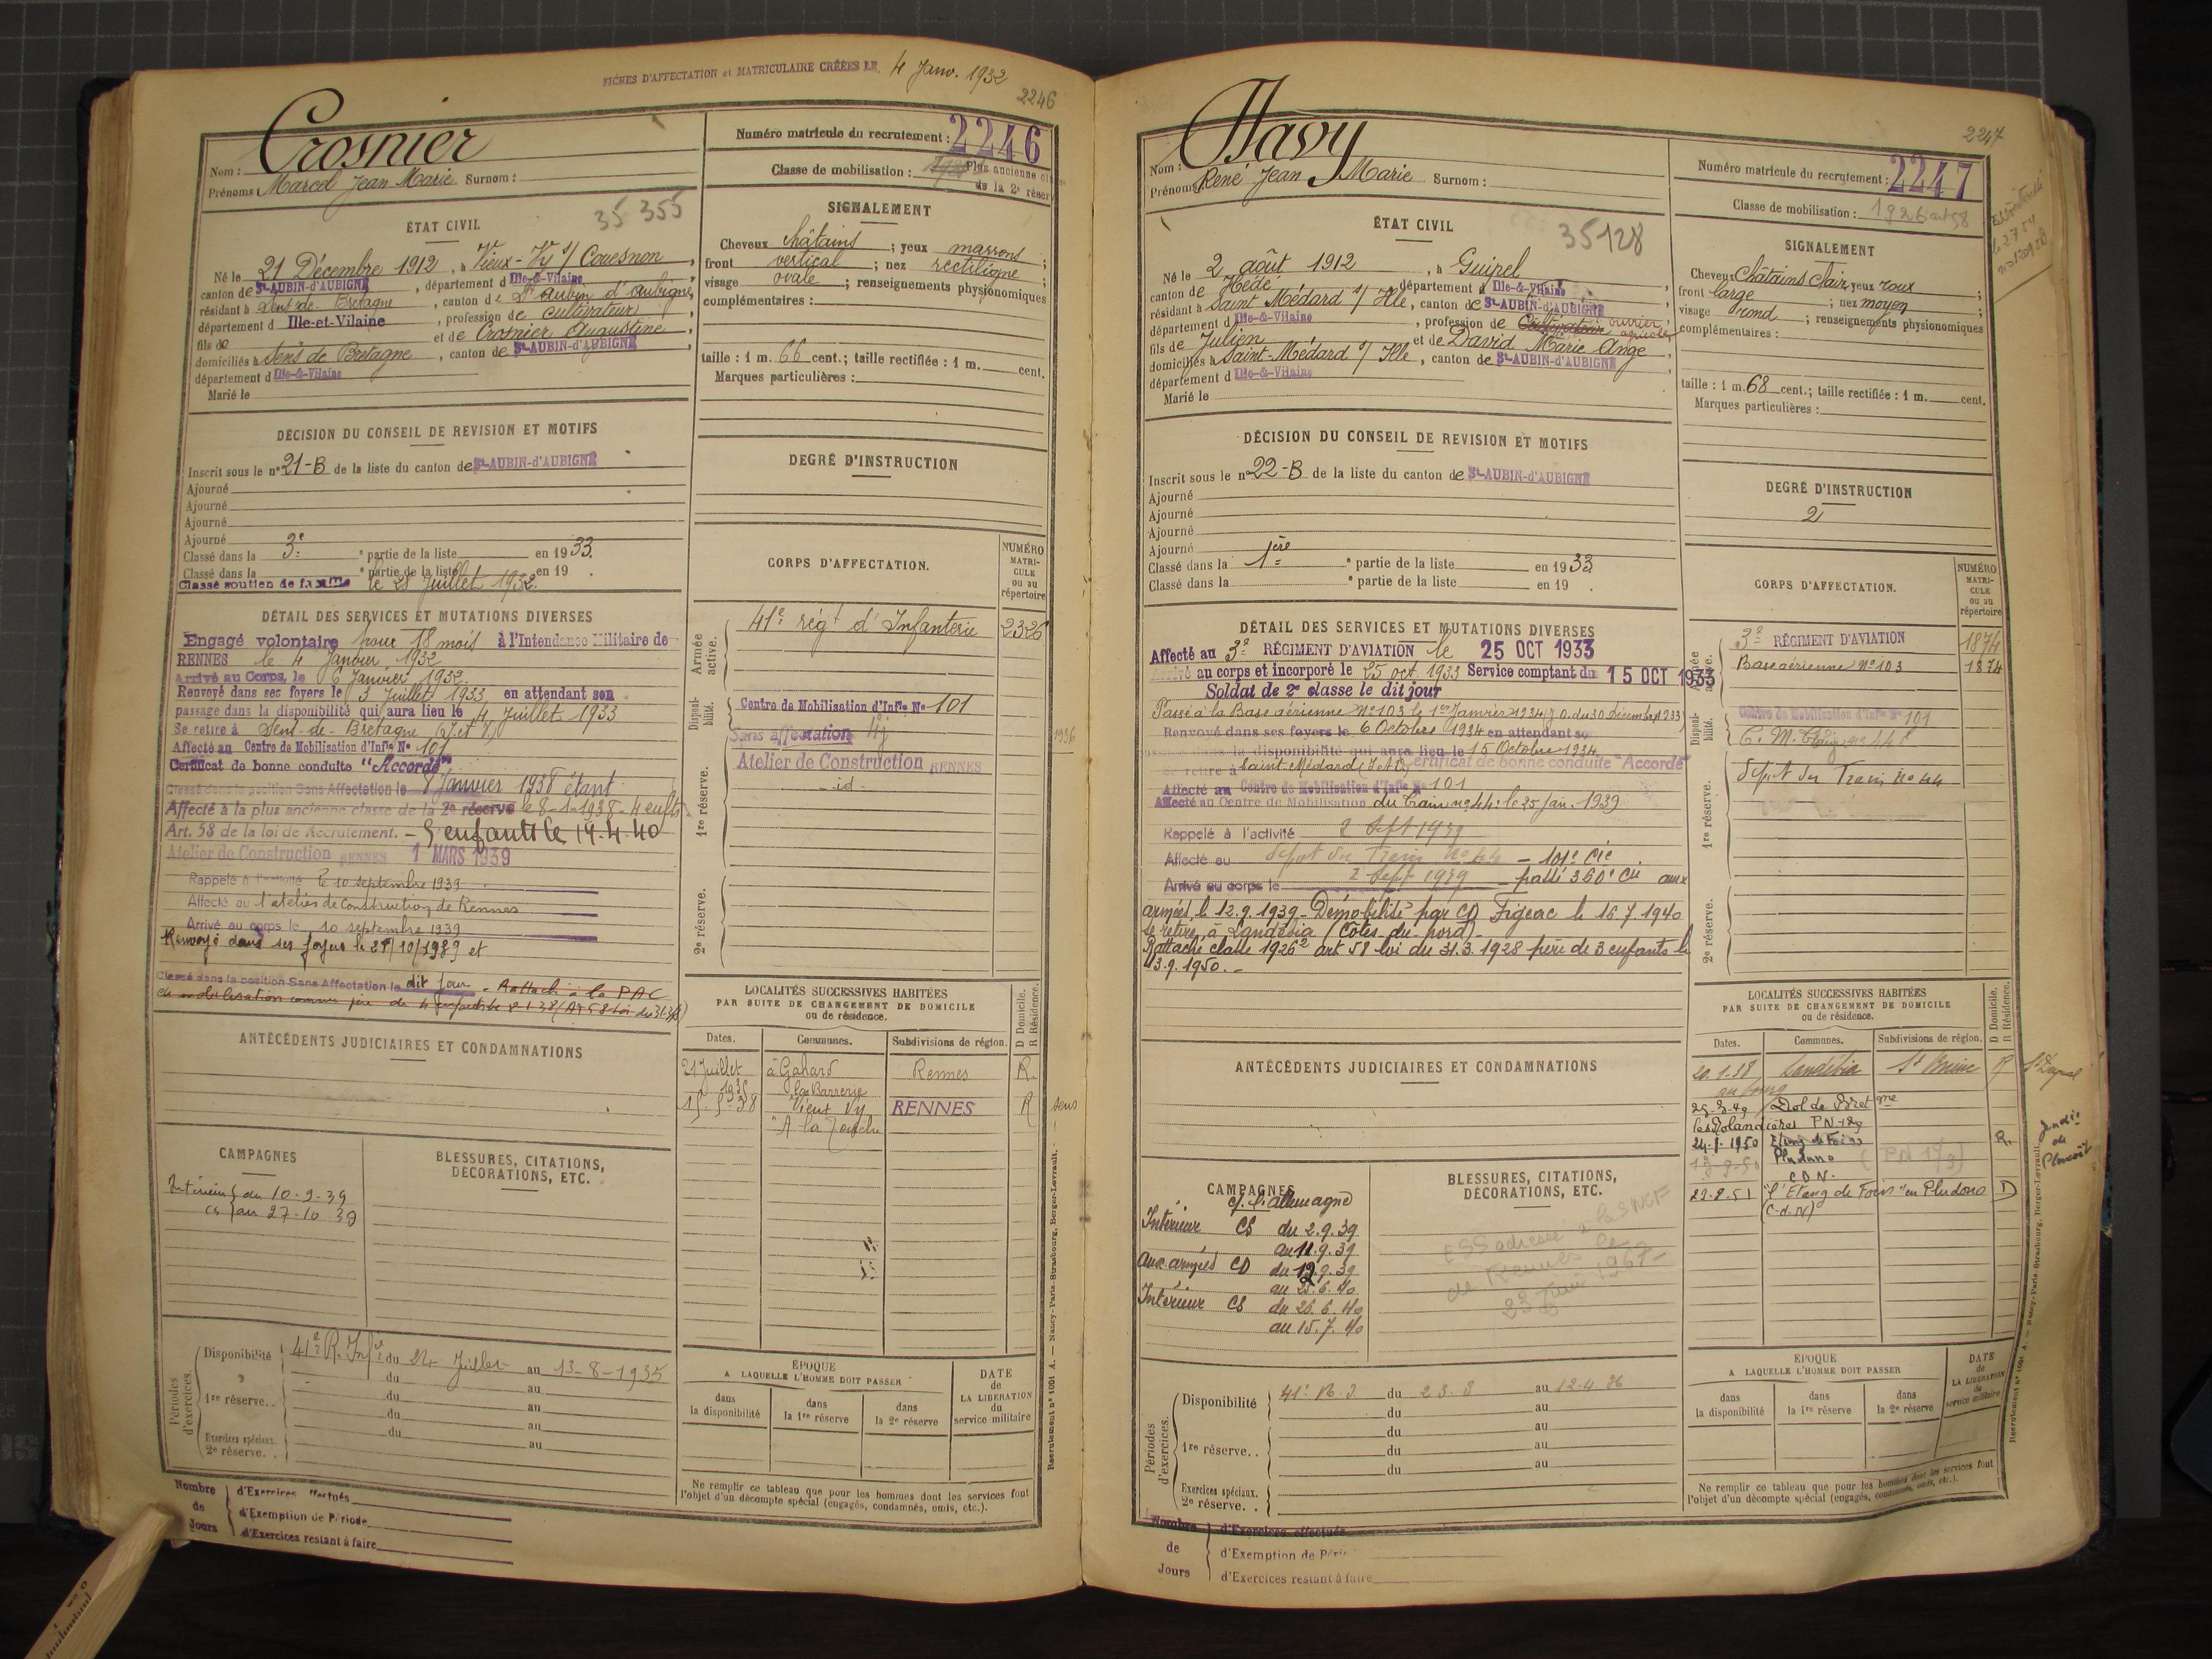 FICHES D'AFFECTATION et MATRICULAIRE CRÉÉES LE 4 Janv. 1932
2246
Nom : Crosnier
Prénoms Marcel Jean Marie Surnom :
Numéro matricule du recrutement : 2246
Classe de mobilisation : Plus ancienne
de la 2e réser
ÉTAT CIVIL
35 355
Né le 21 Décembre 1912, à Vieux-Vy s/ Couesnon,
canton de St-AUBIN-d'AUBIGNÉ, département d Ille-&-Vilaine
résidant à Sens de Bretagne, canton de St aubin d'aubigné,
département d Ille-et-Vilaine, profession de cultivateur
fils de et de Crosnier Augustine
domiciliés à Sens de Bretagne, canton de St-AUBIN-d'AUBIGNÉ
département d Ille-&-Vilaine
Marié le
SIGNALEMENT
Cheveux châtains ; yeux marrons ;
front vertical ; nez rectiligne ;
visage ovale ; renseignements physionomiques
complémentaires :
taille : 1 m. 66 cent.; taille rectifiée : 1 m. cent.
Marques particulières :
DÉCISION DU CONSEIL DE REVISION ET MOTIFS
Inscrit sous le n° 21-B de la liste du canton de St-AUBIN-d'AUBIGNÉ
Ajourné
Ajourné
Ajourné
Ajourné
Classé dans la 3e ° partie de la liste en 1933.
Classé dans la ° partie de la liste en 19 .
Classé soutien de famille le 28 Juillet 1932.
DEGRÉ D'INSTRUCTION
DÉTAIL DES SERVICES ET MUTATIONS DIVERSES
Engagé volontaire pour 18 mois à l'Intendance Militaire de
RENNES le 4 Janvier 1932
Arrivé au Corps, le 6 Janvier 1932.
Renvoyé dans ses foyers le 3 Juillet 1933 en attendant son
passage dans la disponibilité qui aura lieu le 4 Juillet 1933
Se retire à Sens-de-Bretagne (I et V)
Affecté au Centre de Mobilisation d'Infie N° 101
Certificat de bonne conduite "Accordé"
Classé dans la position Sans Affectation le 8 Janvier 1938 étant
Affecté à la plus ancienne classe de la 2e réserve le 8-1-1938 - 4 enfts
Art. 58 de la loi de Recrutement. - 5 enfants le 19.4.40
Atelier de Construction RENNES 1 MARS 1939
Rappelé à l'activité le 10 septembre 1939
Affecté au l'atelier de Construction de Rennes
Arrivé au corps le 10 septembre 1939
Renvoyé dans ses foyers le 27/10/1939 et
Classé dans la position Sans Affectation le dit jour - Rattaché à la PAC
de mobilisation comme père de 4 enfants le 8.1.38 (Art 58 Loi du 31.3.28)
CORPS D'AFFECTATION.
NUMÉRO
MATRI-
CULE
ou au
répertoire
Armée active.
41e régt d'Infanterie 2326
Disponi-bilité.
Centre de Mobilisation d'Infie N° 101
Sans affectation
1936
1re réserve.
Atelier de Construction RENNES
-id-
2e réserve.
ANTÉCÉDENTS JUDICIAIRES ET CONDAMNATIONS
LOCALITÉS SUCCESSIVES HABITÉES
PAR SUITE DE CHANGEMENT DE DOMICILE
ou de résidence.
D Domicile.
R Résidence.
Dates. Communes. Subdivisions de région.
21 Juillet à Gahard Rennes R.
1935 La Barrerie
15-5-38 Vieux Vy RENNES R Sens
"A la Touche
CAMPAGNES
Intérieur du 10.9.39
CS au 27-10-39
BLESSURES, CITATIONS,
DÉCORATIONS, ETC.
Périodes d'exercices.
Disponibilité 41e R. Infie du 24 Juillet au 13-8-1935
du au
1re réserve.. du au
du au
du au
Exercices spéciaux.
2e réserve. .
ÉPOQUE
A LAQUELLE L'HOMME DOIT PASSER
DATE
de
LA LIBÉRATION
du
service militaire
dans la disponibilité
dans la 1re réserve
dans la 2e réserve
Ne remplir ce tableau que pour les hommes dont les services font
l'objet d'un décompte spécial (engagés, condamnés, omis, etc.).
Nombre
de
Jours
d'Exercices effectués
d'Exemption de Période
d'Exercices restant à faire
Recrutement n° 1001 A. — Nancy-Paris-Strasbourg, Berger-Levrault.
2247
Nom : Havy
Prénoms René Jean Marie Surnom :
Numéro matricule du recrutement : 2247
Classe de mobilisation : 1926 art 58
ÉTAT CIVIL
35128
Né le 2 août 1912, à Guipel
canton de Hédé département d Ille-&-Vilaine
résidant à Saint Médard s/ Ille, canton de St-AUBIN-d'AUBIGNÉ
département d Ille-&-Vilaine, profession de Cultivateur ouvrier agricole
fils de Julien et de David Marie Ange
domiciliés à Saint-Médard s/ Ille, canton de St-AUBIN-d'AUBIGNÉ
département d Ille-&-Vilaine
Marié le
SIGNALEMENT
Cheveux châtains clair yeux roux ;
front large ; nez moyen ;
visage rond ; renseignements physionomiques
complémentaires :
taille : 1 m. 68 cent.; taille rectifiée : 1 m. cent.
Marques particulières :
DÉCISION DU CONSEIL DE REVISION ET MOTIFS
Inscrit sous le n° 22-B de la liste du canton de St-AUBIN-d'AUBIGNÉ
Ajourné
Ajourné
Ajourné
Ajourné
Classé dans la 1ère ° partie de la liste en 1933.
Classé dans la ° partie de la liste en 19 .
DEGRÉ D'INSTRUCTION
2
DÉTAIL DES SERVICES ET MUTATIONS DIVERSES
Affecté au 3e RÉGIMENT D'AVIATION le 25 OCT 1933
Arrivé au corps et incorporé le 25 oct. 1933 Service comptant du 15 OCT 1933
Soldat de 2e classe le dit jour
Passé à la Base aérienne N° 103 le 1er Janvier 1934 (J.O. du 30 Décembre 1933)
Renvoyé dans ses foyers le 6 Octobre 1934 en attendant so
passage dans la disponibilité qui aura lieu le 15 Octobre 1934
Se retire à Saint-Médard (I.&V.) Certificat de bonne conduite "Accordé"
Affecté au Centre de Mobilisation d'Infie N° 101
Affecté au Centre de Mobilisation du Train n° 44 le 25 Jan. 1939
Rappelé à l'activité 2 Sept 1939
Affecté au dépôt du Train No 44 - 101e Cie
Arrivé au corps le 2 Sept 1939 - passé 360e Cie aux
armées le 12.9.1939 - Démobilisé par CD Figeac le 16 7 1940
se retire à Landébia (Côtes du nord).
Rattaché classe 1926² art 58 loi du 31.3.1928 père de 3 enfants le
13.9.1950.-
CORPS D'AFFECTATION.
NUMÉRO
MATRI-
CULE
ou au
répertoire
3e RÉGIMENT D'AVIATION 1874
Base aérienne N° 103 1874
Disponi-bilité.
Centre de Mobilisation d'Infie N° 101
C. M. Train 44
1re réserve.
dépôt du Train No 44
2e réserve.
ANTÉCÉDENTS JUDICIAIRES ET CONDAMNATIONS
LOCALITÉS SUCCESSIVES HABITÉES
PAR SUITE DE CHANGEMENT DE DOMICILE
ou de résidence.
D Domicile.
R Résidence.
Dates. Communes. Subdivisions de région.
20.1.38 Landébia St Brieuc R
au bourg
25-3-49 Dol de Bretgne
les Rolandières PN
24-8-1950 Etang de Foins R.
Pluduno
C D N.
29-8-51 "l'Etang de Foins" en Pluduno D
(C-d-N)
CAMPAGNES
c/ l'allemagne
Intérieur CS du 2.9.39
au 11.9.39
Aux armées CD du 12.9.39
au 25.6.40
Intérieur CS du 26.6.40
au 15.7.40
BLESSURES, CITATIONS,
DÉCORATIONS, ETC.
ESS adressé à la SNCF
de Rennes le
23 1967-
Périodes d'exercices.
Disponibilité 41e R.I. du 23.3 au 12.4.36
du au
du au
1re réserve. . du au
du au
Exercices spéciaux.
2e réserve. .
ÉPOQUE
A LAQUELLE L'HOMME DOIT PASSER
DATE
de
LA LIBÉRATION
du
service militaire
dans la disponibilité
dans la 1re réserve
dans la 2e réserve
Ne remplir ce tableau que pour les hommes dont les services font
l'objet d'un décompte spécial (engagés, condamnés, omis, etc.).
Nombre
de
Jours
d'Exercices effectués
d'Exemption de Péri
d'Exercices restant à faire
Recrutement n° 1001 A. — Nancy-Paris-Strasbourg, Berger-Levrault.